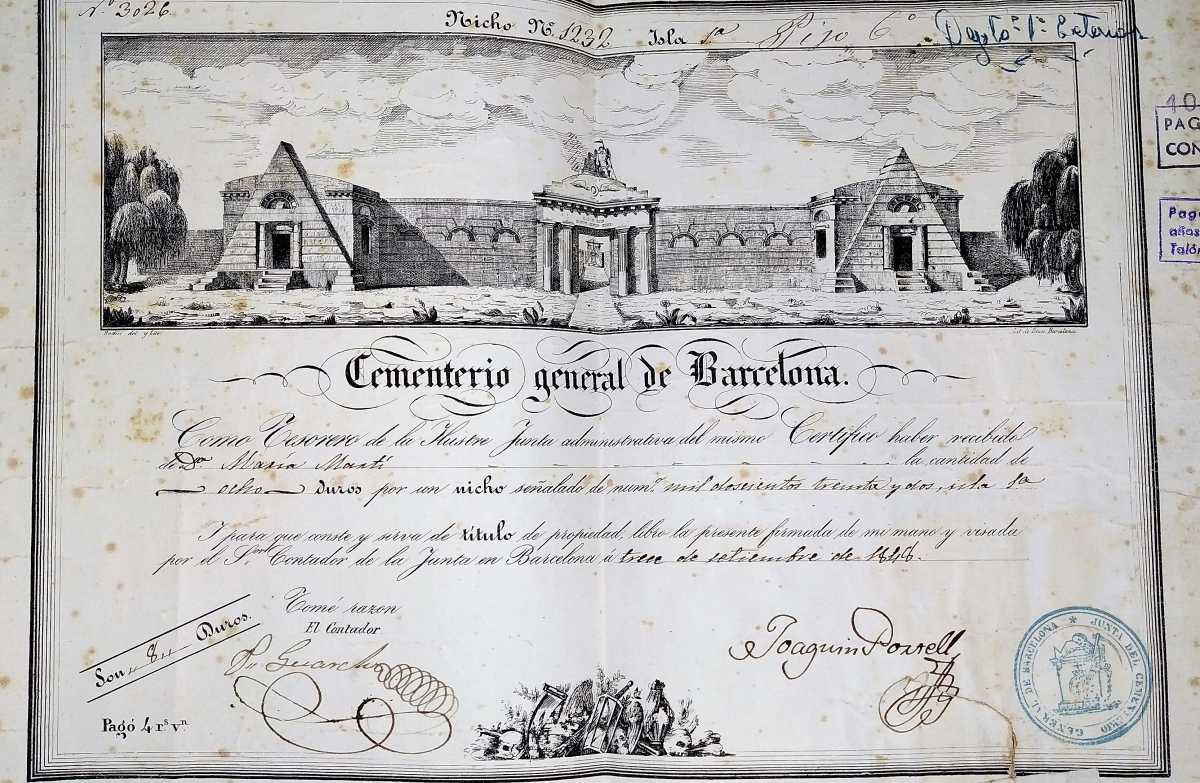 Nº 3026
Nicho Nº 1232 Isla 1ª Piso 6º
Depto. 1º Exterior
PAG
CON
Pag
años
Talón
Cementerio general de Barcelona.
Como Tesorero de la Ilustre Junta administrativa del mismo Certifico haber recibido
de Dª María Martí la cantidad de
ocho duros por un nicho señalado de numº mil doscientos treinta y dos, isla 1ª
Y para que conste y sirva de título de propiedad, libro la presente firmada de mi mano y visada
por el Sor. Contador de la Junta en Barcelona á trece de setiembre de 1848.
Tomé razon
El Contador
Son 8 Duros.
Joaquin
Pagó 4 rs vn
JUNTA DEL CEMENTERIO GENERAL DE BARCELONA